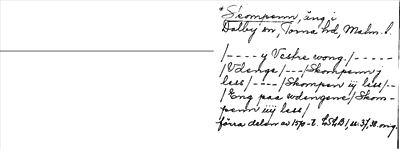 *Skompenn, äng i
Dalby sn, Torna hd, Malm. l.
/---- y Vestre wong. /-----
/Vdenge /---/Skompenn j
less /----/Skompen iij less/--
/Eng paa wdengene/ Skom-
penn iiij less/
förra delen av 1570-t. LSLB,